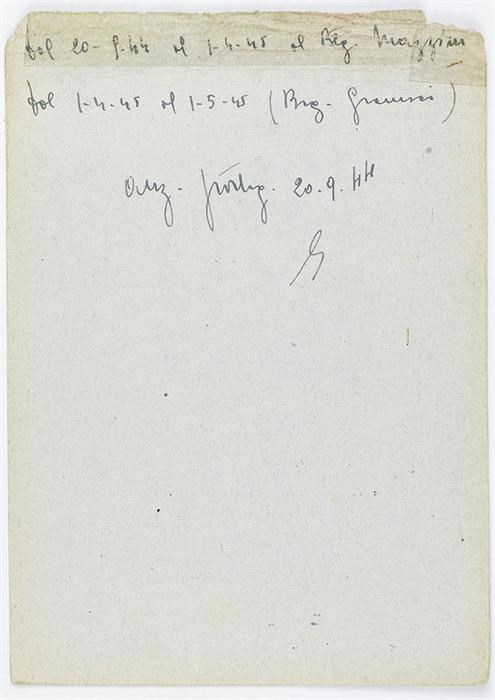 dal 20-9-44 al 1-4-45 al Brg. Mazzini
dal 1-4-45 al 1-5-45 (Brg. Gramsci)
20.9.44